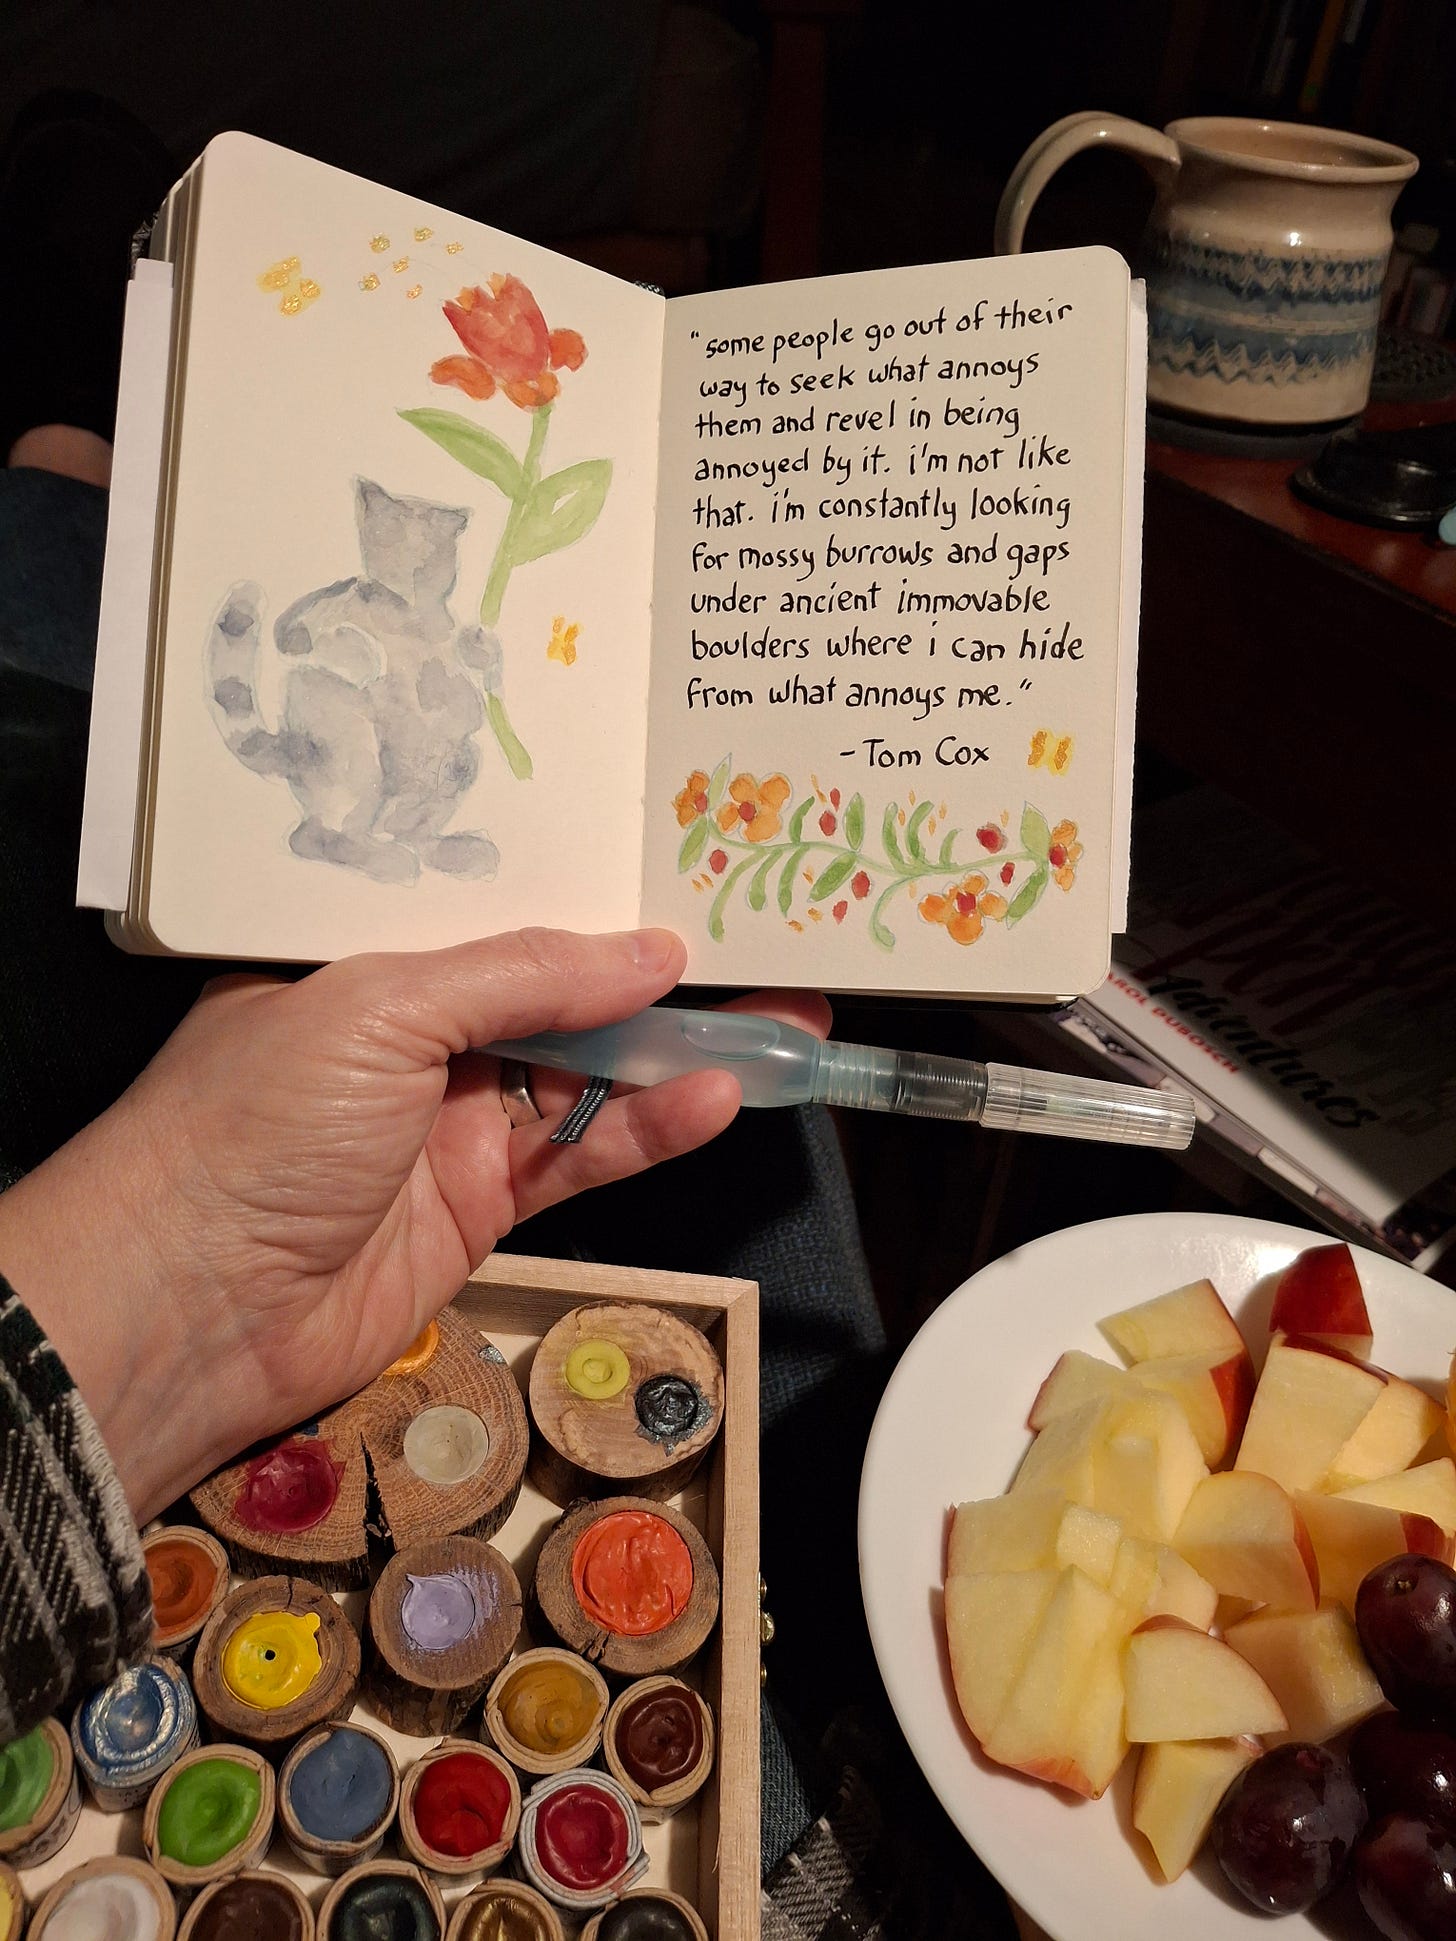 "some people go out of their
way to seek what annoys
them and revel in being
annoyed by it. i'm not like
that. i'm constantly looking
for mossy burrows and gaps
under ancient immovable
boulders where i can hide
from what annoys me."
- Tom Cox
Adventures
AROL DUBOSCH